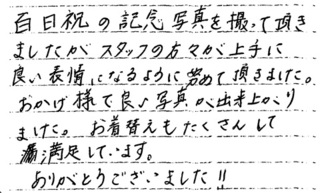 百日祝の記念写真を撮って頂き
ましたがスタッフの方々が上手に
良い表情になるように努めて頂きました。
おかげ様で良い写真が出来上がり
ました。お着替えもたくさんして
満足しています。
ありがとうございました!!